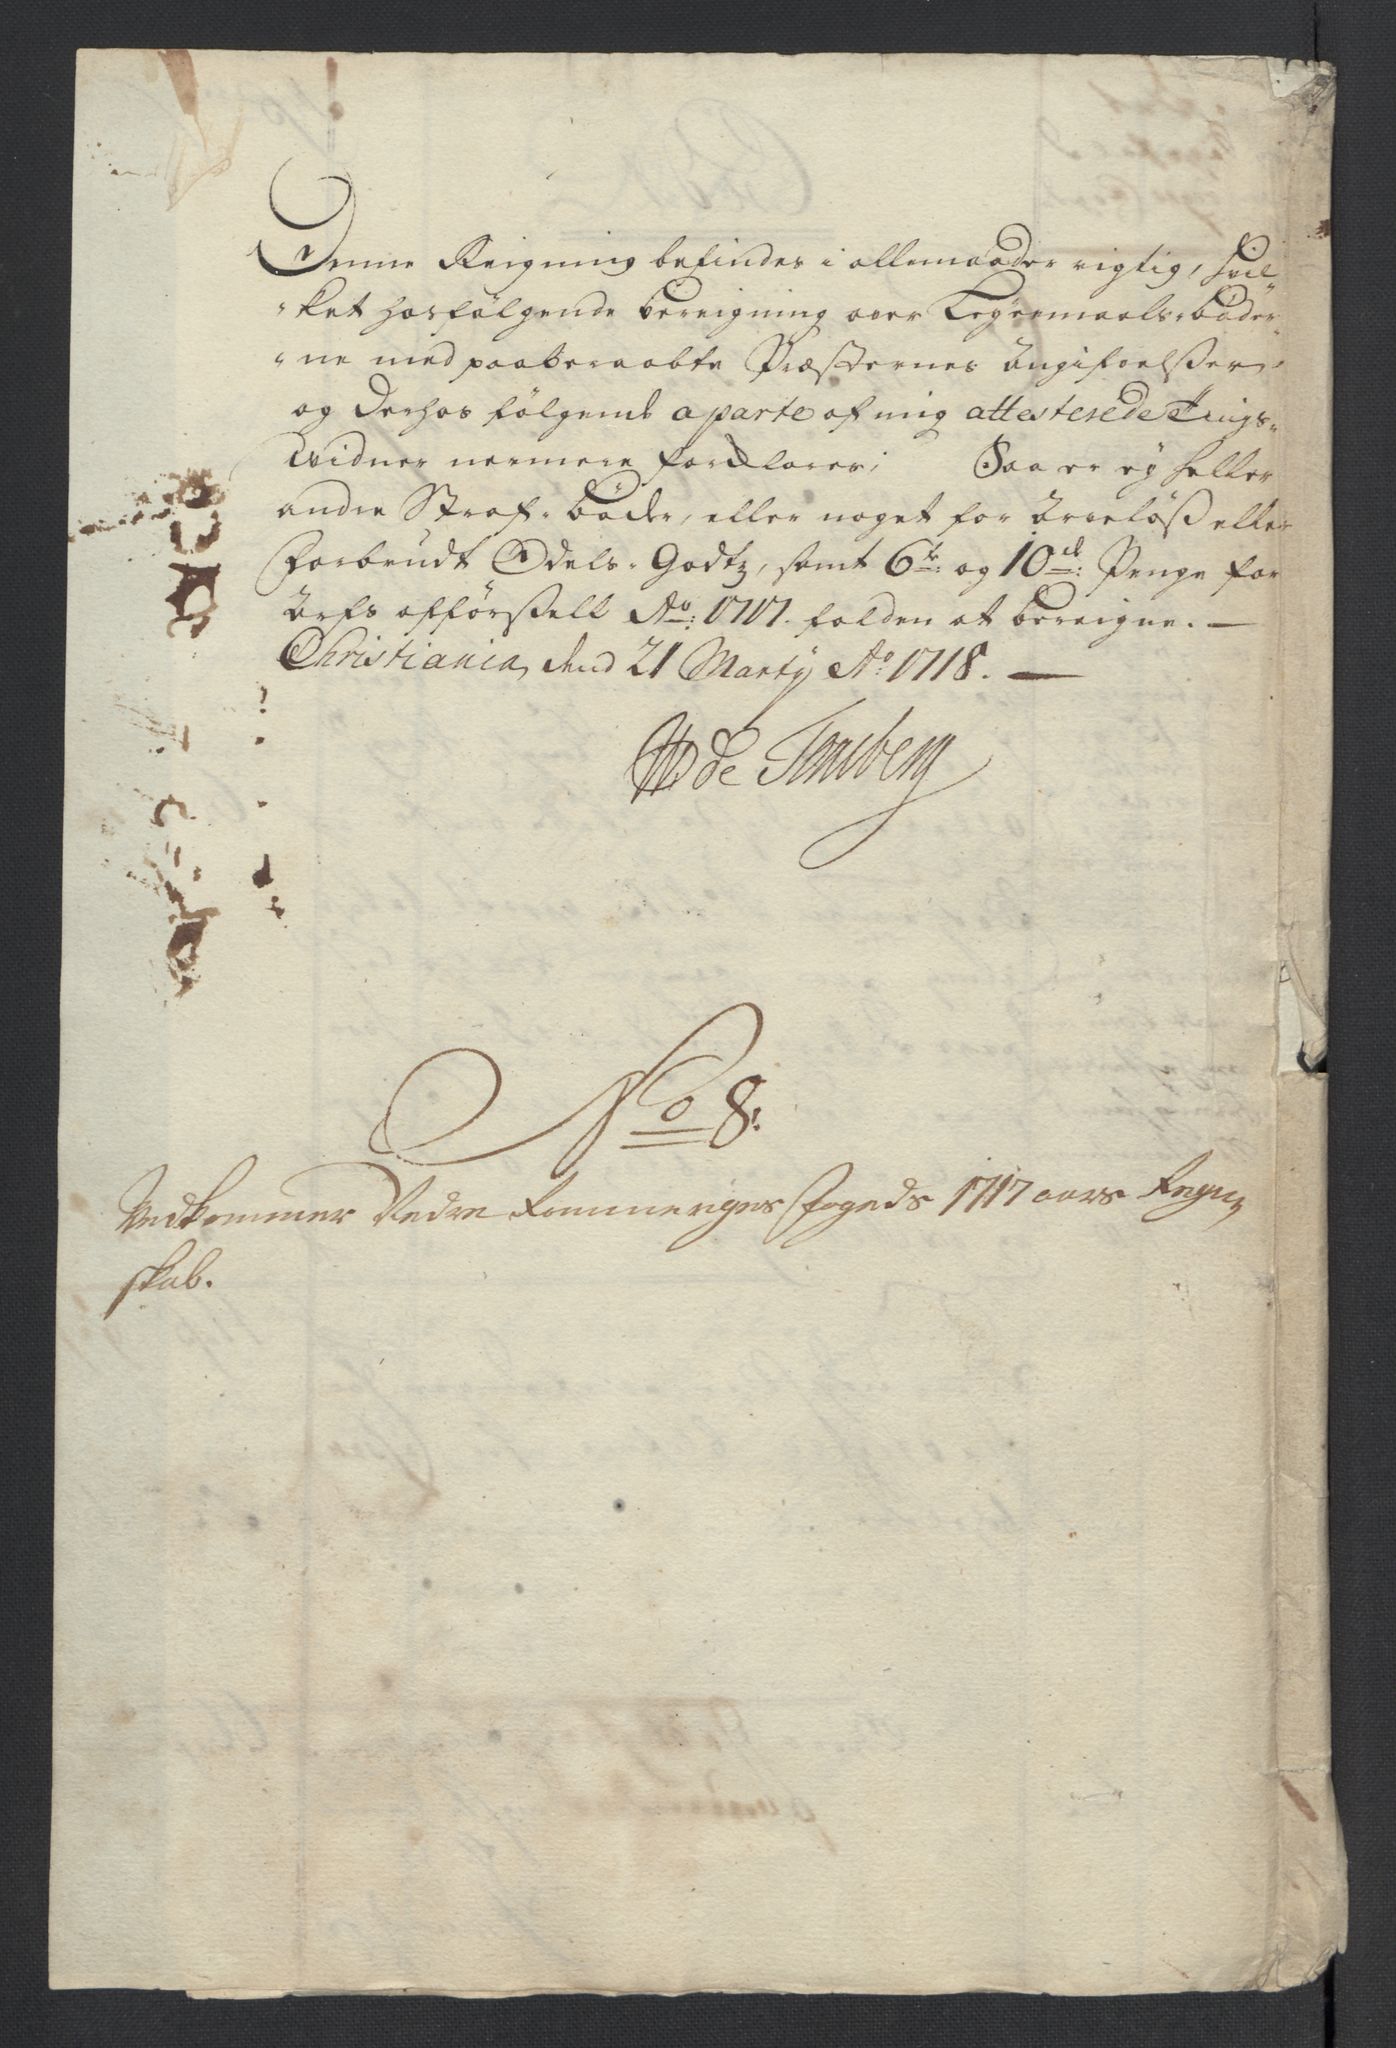 Denne Reigning befindes i allemaader rigtig, hvil=
=ket hosfølgende bereigning over Legermaals-bøder=
=ne med paaberaabte Præsternes Angifvelsser
og derhos følgende aparte af mig attesterede Tings-
Widner nermere forklarer; Saa er ey heller
andre Straf-bøder, eller noget for Arveløß eller
forbrudt Odels-Godtz, samt 6te: og 10de: Penge for
Arfs afførßell Ao: 1717. falden at bereigne. —
Christiania, dend 21 Marty Ao: 1718. —
de Tonsberg
No 8:
Vedkommer Nedre Rommeriges Fogeds 1717 aars Regn
skab.